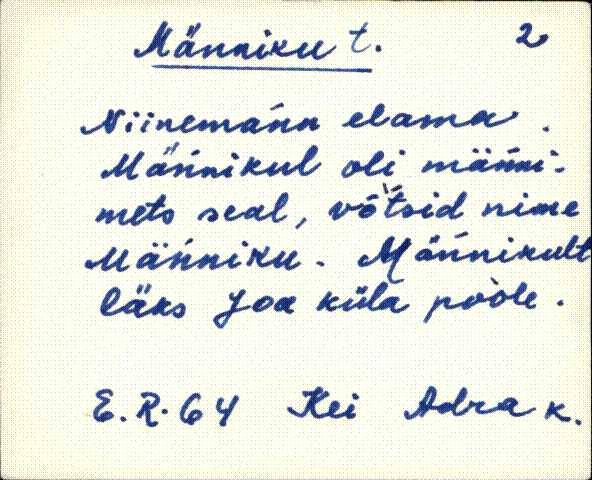 Männiku t. 2
Niinemańn elama.
Mäńnikul oli mäńni-
mets seal, vo᷈tsid nime
Mäńniku. Mäńnikult
läks Joa küla pòole.
E.R. 64 Kei Adra k.